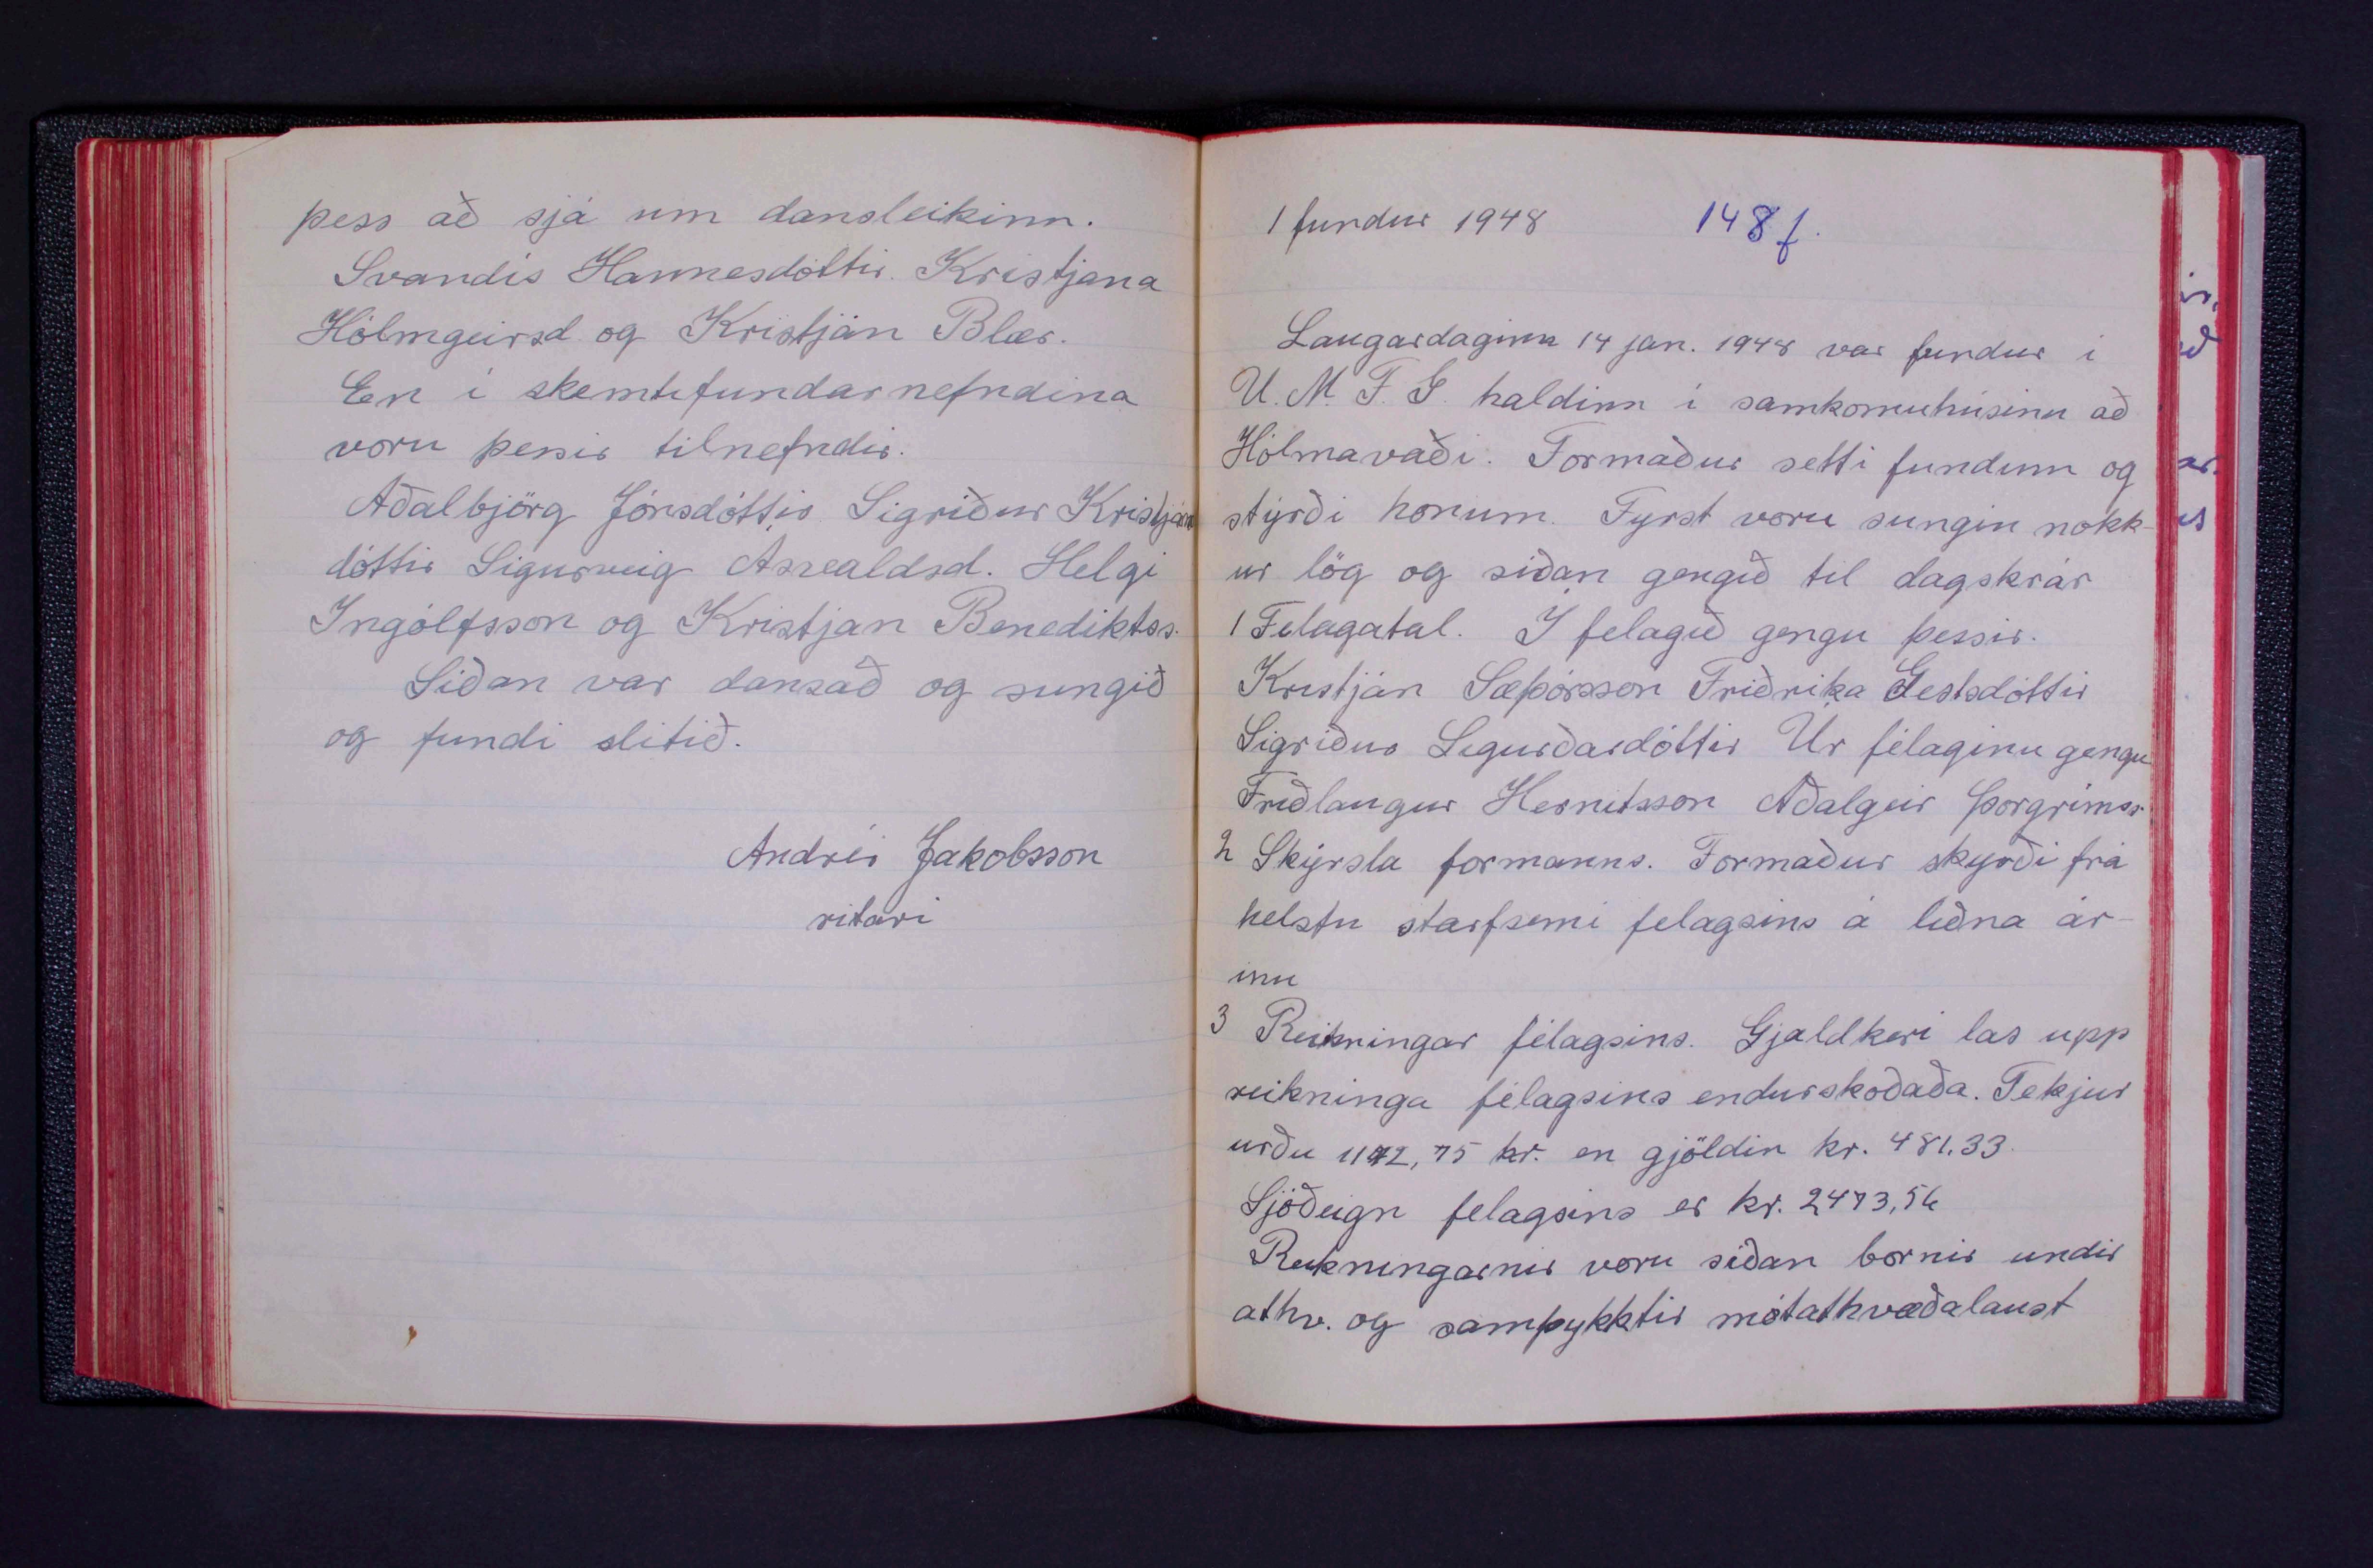 þess að sjá um dansleikinn.
Svandís Hannesdóttir. Kristjana
Hólmgeirsd. og Kristján Blær.
En í skemtifundarnefndina
voru þessir tilnefndir.
Aðalbjörg Jónsdóttir Sigríður Kristjáns
dóttir Sigurveig Ásvaldsd. Helgi
Ingólfsson og Kristján Benediktss.
Síðan var dansað og sungið
og fundi slitið.
Andrés Jakobsson
ritari
1 fundur 1948 148 f.
Laugardaginn 14 jan. 1948 var fundur í
U. M. F. G. haldinn í samkomuhúsinu að
Hólmavaði. Formaður setti fundinn og
stýrði honum. Fyrst voru sungin nokk-
ur lög og síðan gengið til dagskrár
1 Félagatal. Í félagið gengu þessir.
Kristján Sæþórsson Friðrika Gestsdóttir
Sigríður Sigurðardóttir Úr félaginu gengu
Friðlaugur Hernitsson Aðalgeir Þorgrímss.
2 Skýrsla formanns. Formaður skyrði frá
helstu starfsemi félagsins á liðna ár-
inu
3 Reikningar félagsins. Gjaldkeri las upp
reikninga félagsins endurskoðaða. Tekjur
urðu kr. en gjöldin kr. 481.33.
Sjóðeign félagsins er kr. 2473,56
Reikningarnir voru síðan bornir undir
athv. og samþykktir mótathvæðalaust